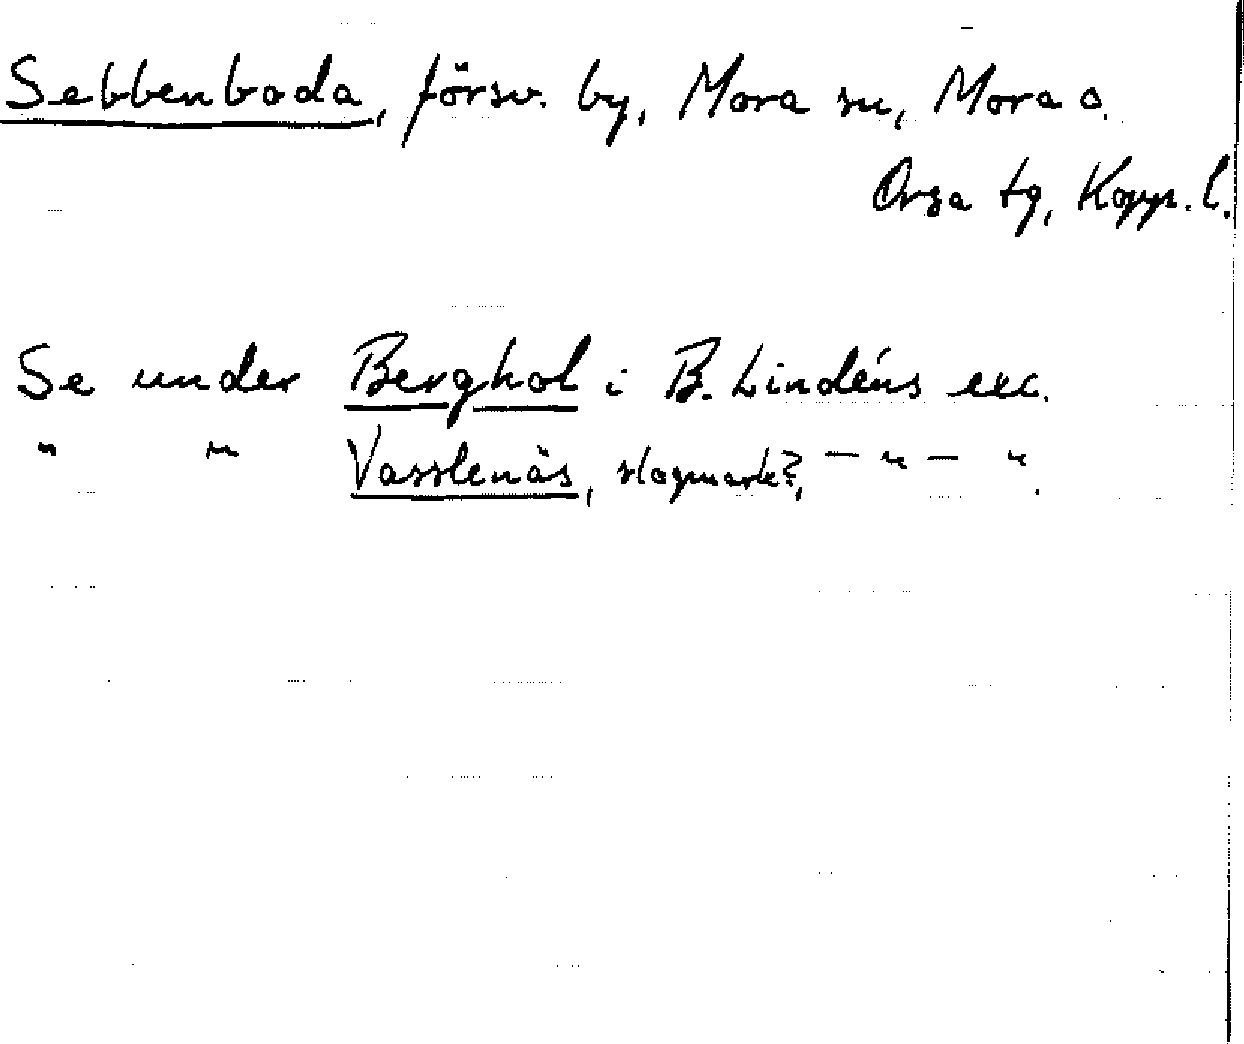 Sebbenboda, försv. by, Mora sn, Mora o.
Orsa tg, Kopp. l.
Se under Berghol i B. Lindéns exc.
" " Vasslenäs, slogmark?, — " — ".